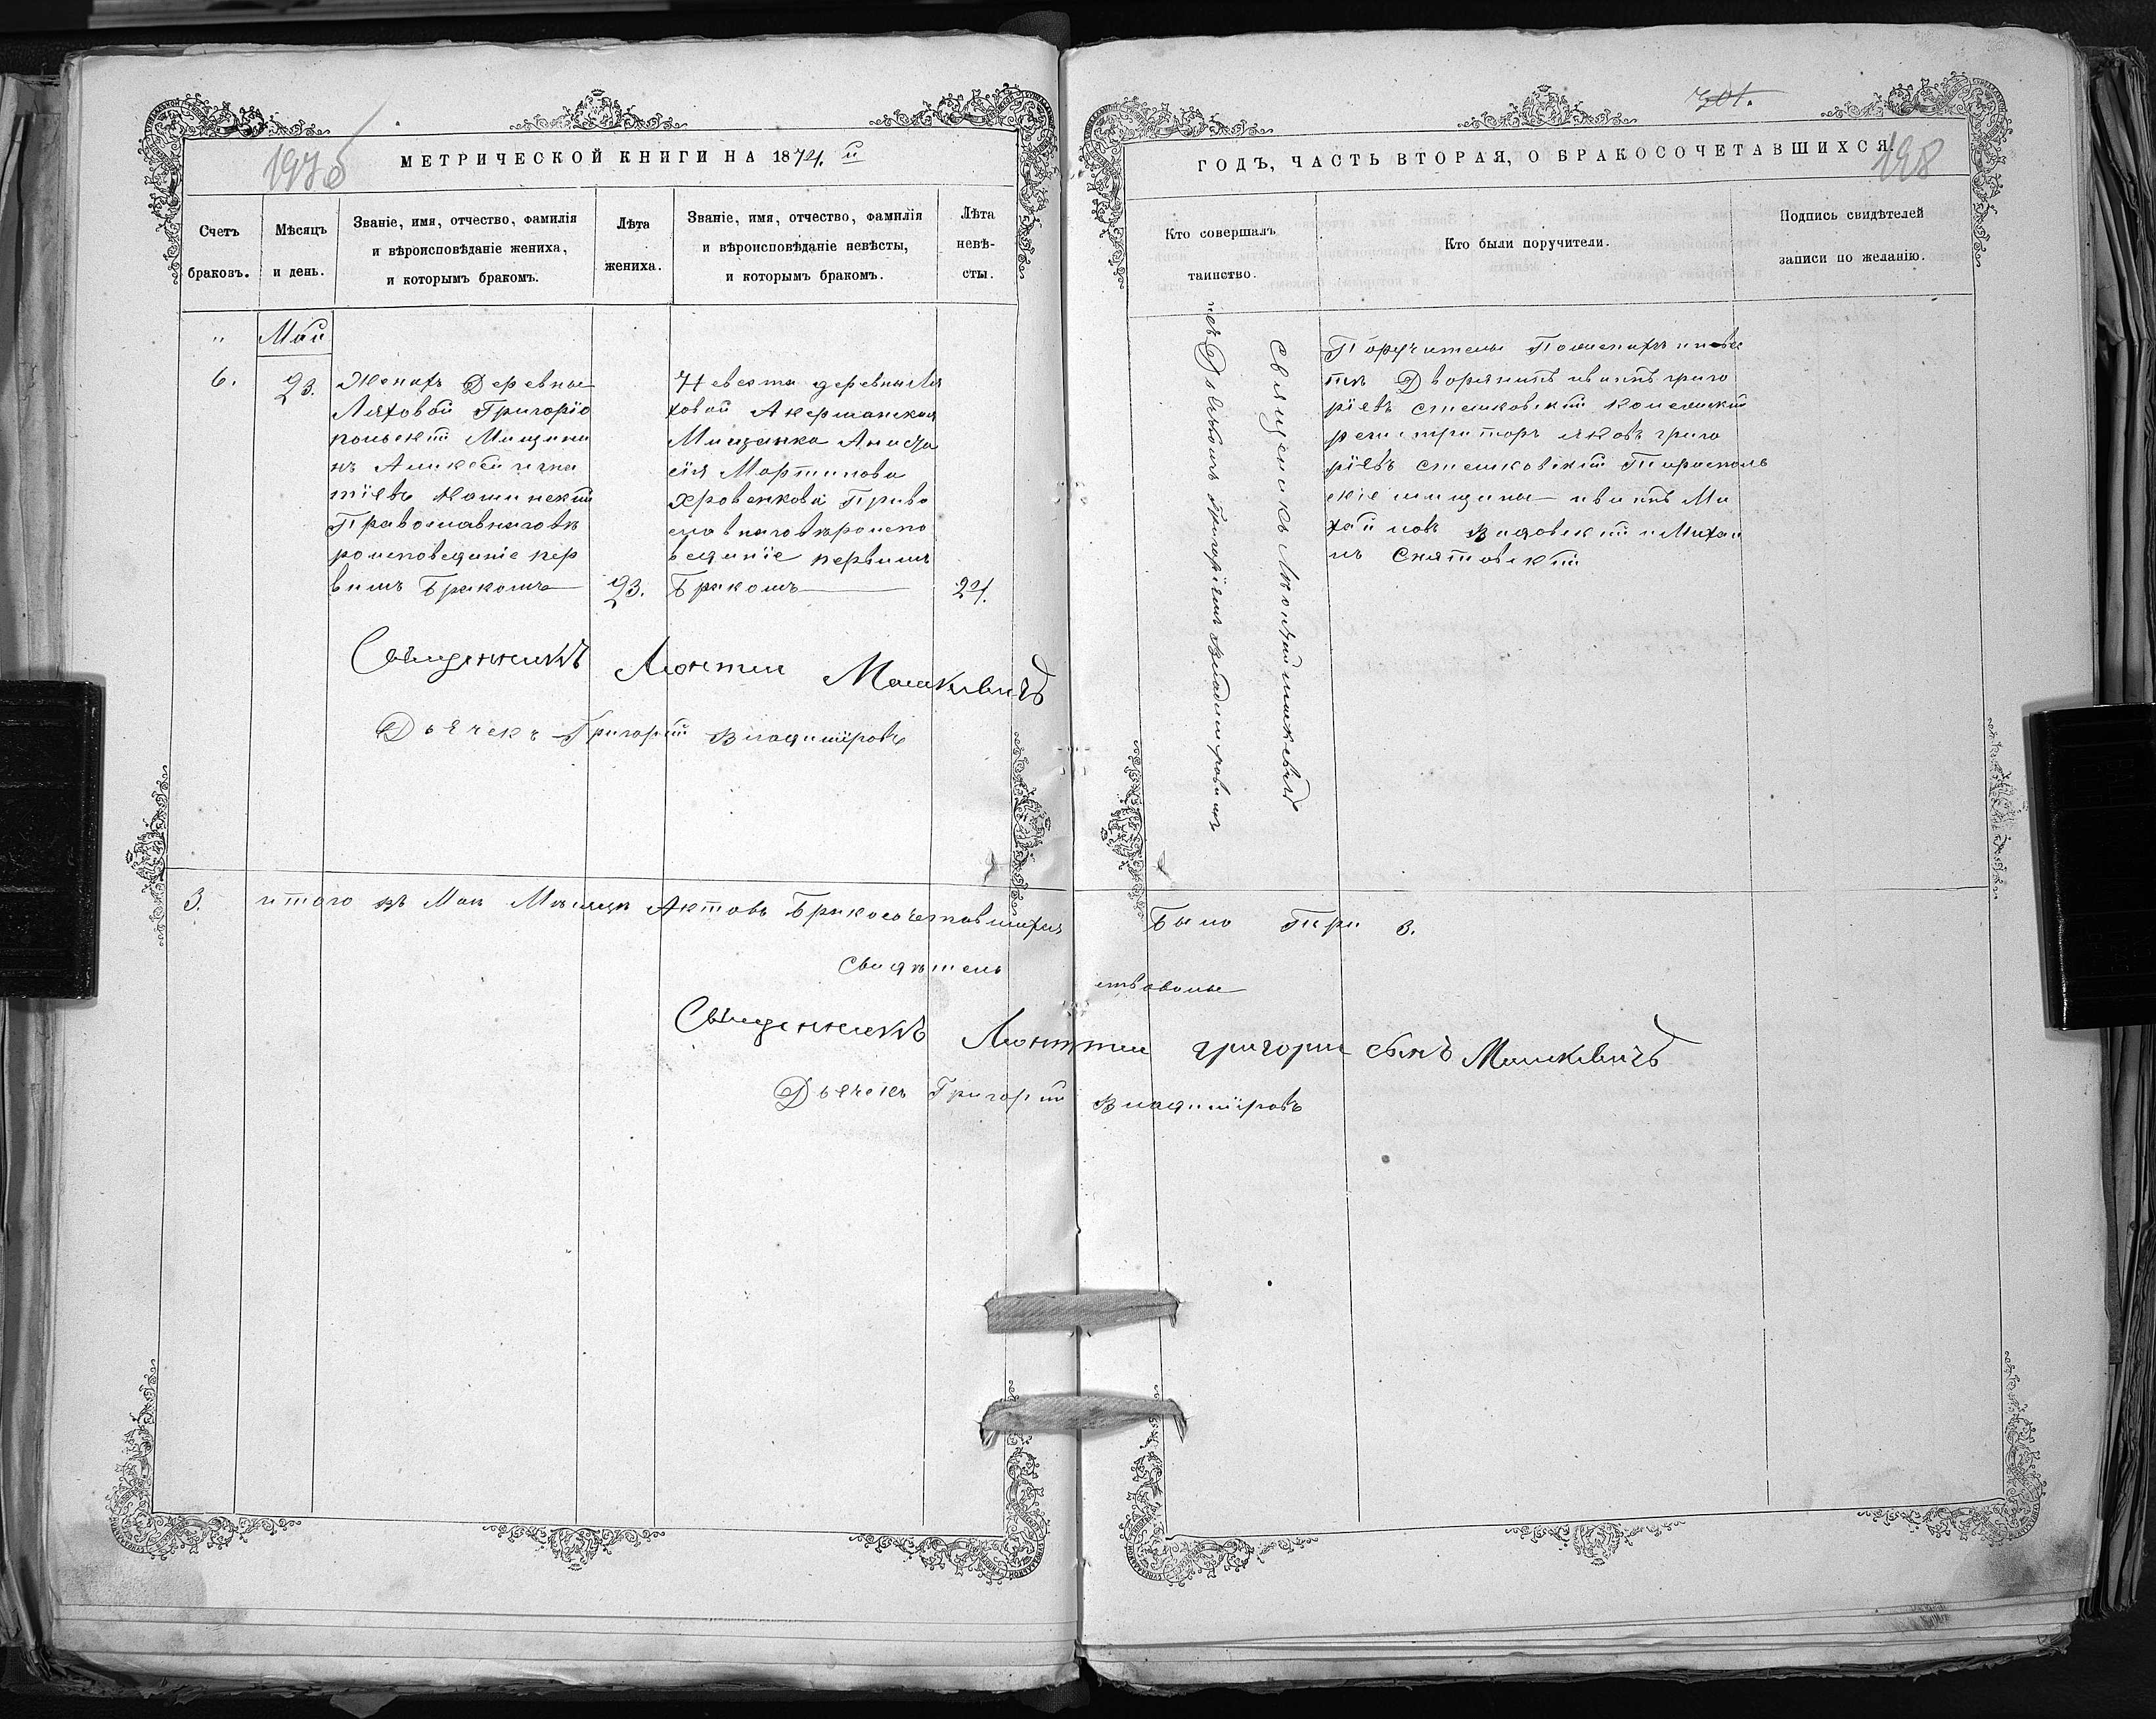 МЕТРИЧЕСКОЙ КНИГИ НА 1874. й
197 об
Счетъ браковъ.
Мѣсяцъ и день.
Званіе, имя, отчество, фамилія
и вѣроисповѣданіе жениха,
и которымъ бракомъ.
Лѣта жениха.
Званіе, имя, отчество, фамилія
и вѣроисповѣданіе невѣсты,
и которымъ бракомъ.
Лѣта невѣ-
сты.
" Май
6. 23.
Женихъ Деревне
Ляховой Григоріо
польскій Мищани
нъ Аликсѣй игна
тіевъ
Православнаговѣ
роисповеданіе пер
вимъ Бракомъ
23.
Невеста деревныЛя
ховой Акерманская
Мищанка Анаста
сія Мартинова
Хровенкова Право
славнаговѣроиспо
веданіе первимъ
Бракомъ
21.
Священникъ Леонтии Машкевичъ
Дьячекъ Григорій Владиміровъ
3. итого въ Маи Мѣсяцѣ Актовъ Бракосочетавшихся
Свидѣтель
Священникъ Леонтии
Дьячекъ Григорій
701.
198
ГОДЪ, ЧАСТЬ ВТОРАЯ, О БРАКОСОЧЕТАВШИХСЯ.
Кто совершалъ
таинство.
Кто были поручители.
Подпись свидѣтелей
записи по желанію.
Священикъ Леонтій Машкевичъ
изъ Дьячкомъ Григоріемъ Владимировимъ
Поручители Поженихъ иневес
тѣ Дворянинъ иванъ григо
ріевъ стешковскій колежскій
регистраторъ яковъ григо
ріевъ стешковскій Тирасполь
скіе мищаны иванъ Ми
хайловъ Видовскій иМихаи
лъ Снятовскій
Было Пари 3.
ствовалы
григории сынъ Машкевичъ
Владиміровъ